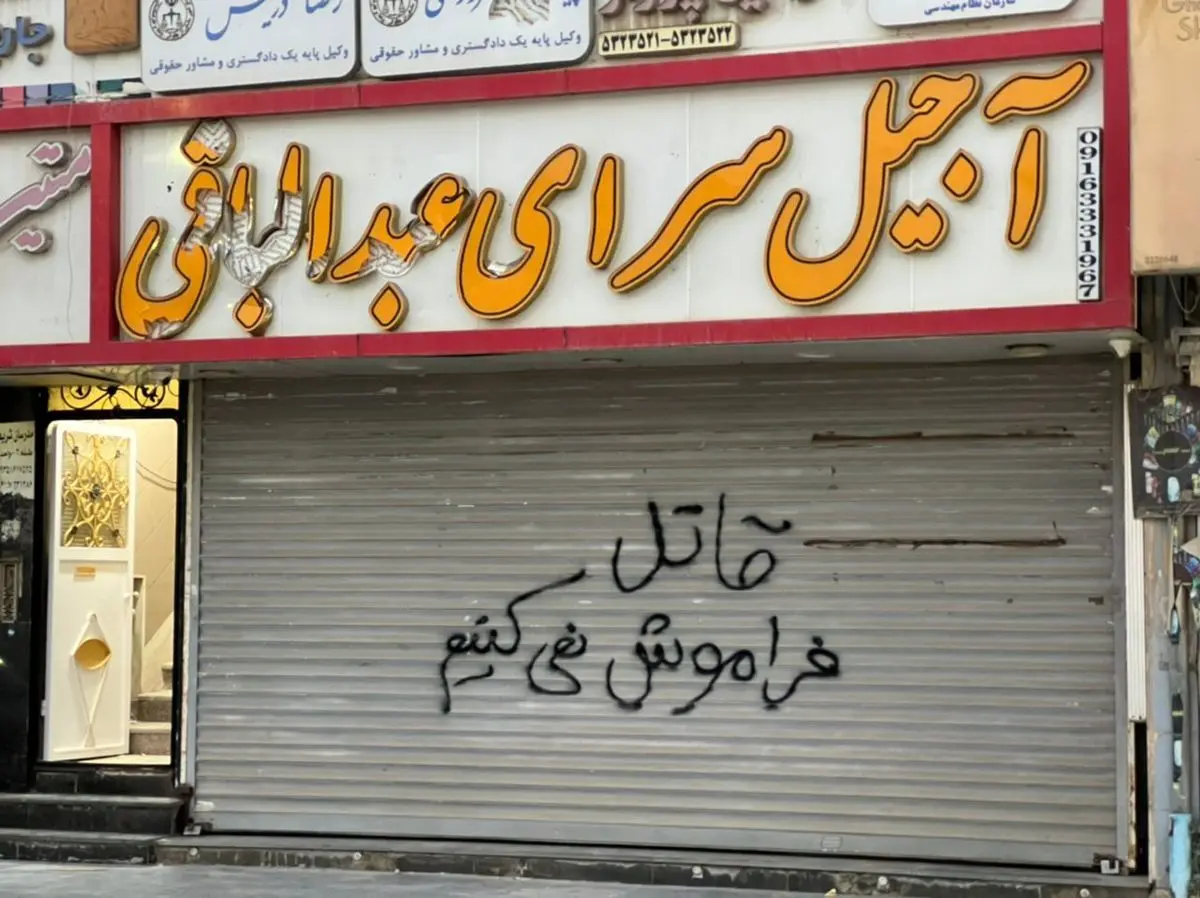 وکیل پایه یک دادگستری و مشاور حقوقی
وکیل پایه یک دادگستری و مشاور حقوقی
۵۳۲۳۵۲۱-۵۳۲۳۵۲۲
سازمان نظام مهندسی
آجیل سرای عبدالباقی
09163331967
قاتل
فراموش نمی کنیم